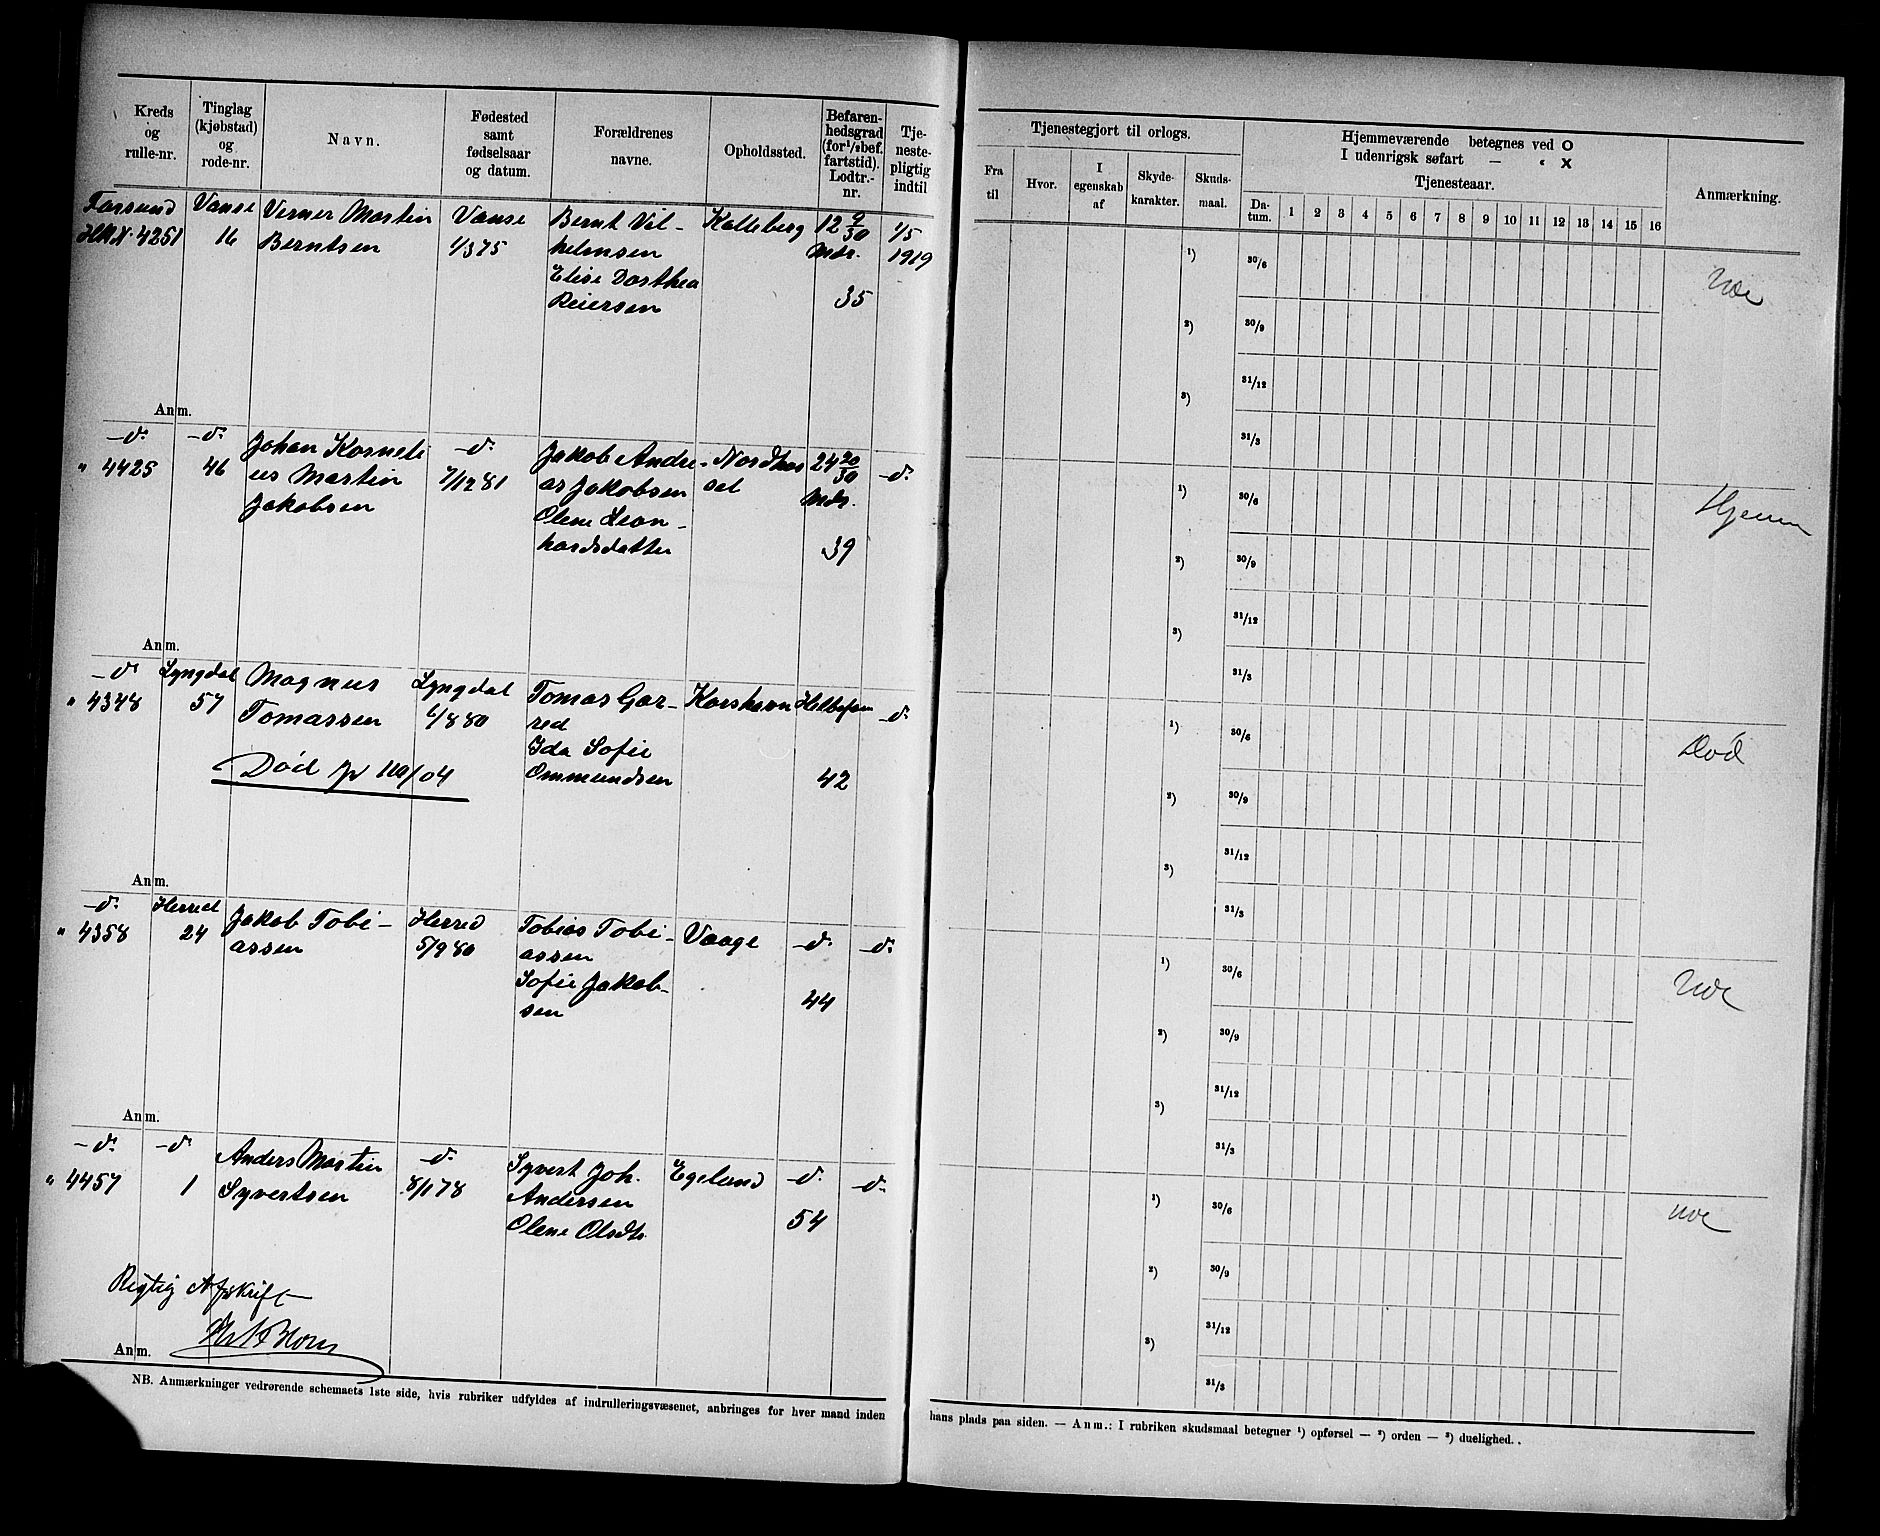 Kreds og rulle-nr.
Tinglag (kjøbstad) og rode-nr.
Navn.
Fødested samt fødselsaar og datum.
Forældrenes navne.
Opholdssted.
Befaren-hedsgrad (for 1/2 bef. fartstid). Lodtr.-nr.
Tje-neste-pligtig indtil
Farsund Vanse Verner Martin Vanse Bernt Vil- Kalleberg 12 9/30 1/5
4251 16 Berntsen 1/3 75 helmsen Mdr. 1919
Elise Dorthea
Reiersen 35
Anm.
-d. -d. Johan Korneli -d. Jakob Andre- Nordhas 24 20/30 -d.
" 4425 46 us Martin 7/12 81 as Jakobsen sel Mdr.
Jakobsen Olene Leon-
hardsdatter 39
Anm.
-d. Lyngdal Magnus Lyngdal Tomas Gar- Korshavn Helbefaren -d.
" 4348 57 Tomassen 6/8 80 red
Ida Sofie
Død 04 Ommundsen 42
Anm.
-d. Herred Jakob Tobi- Herred Tobias Tobi- Vaage -d. -d.
" 4358 24 assen 5/9 80 assen
Sofie Jakob-
sen 44
Anm.
-d. -d. Anders Martin -d. Syvert Joh. Egeland -d. -d.
" 4457 1 Syvertsen 8/1 78 Andersen
Olene Olsdtr. 54
Rigtig Afskrift
Anm.
NB. Anmærkninger vedrørende schemaets 1ste side, hvis rubriker udfyldes af indrulleringsvæsenet, anbringes for hver mand inden
Tjenestegjort til orlogs.
Fra til
Hvor.
I egenskab af
Skyde-karakter.
Skuds-maal.
Hjemmeværende betegnes ved O
I udenrigsk søfart — " X
Tjenesteaar.
Da-tum. 1 2 3 4 5 6 7 8 9 10 11 12 13 14 15 16
Anmærkning.
1) 30/6 Ude
2) 30/9
31/12
3)
31/3
1) 30/6 Hjemme
2) 30/9
31/12
3)
31/3
1) 30/6 Død
2) 30/9
31/12
3)
31/3
1) 30/6 Ude
2) 30/9
31/12
3)
31/3
1) 30/6 ude
2) 30/9
31/12
3)
31/3
hans plads paa siden. — Anm.: I rubriken skudsmaal betegner 1) opførsel — 2) orden — 3) duelighed.